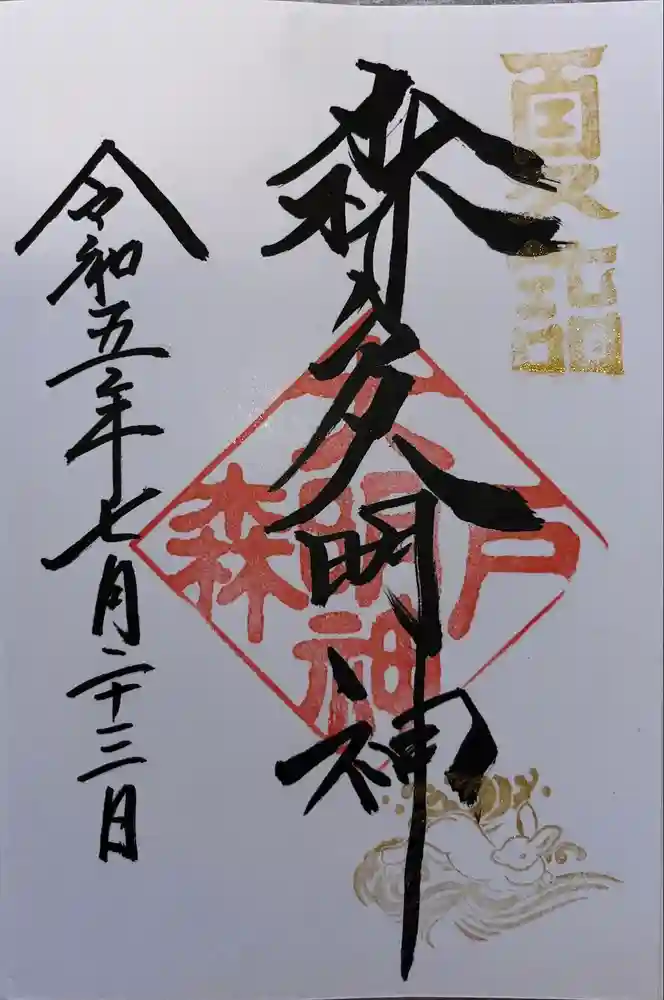 夏詣
森戸大明神
森戸大明神
令和五年七月二十三日